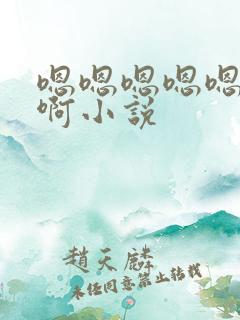 嗯嗯嗯嗯嗯
啊小说
趙天麟
未经同意禁止转载